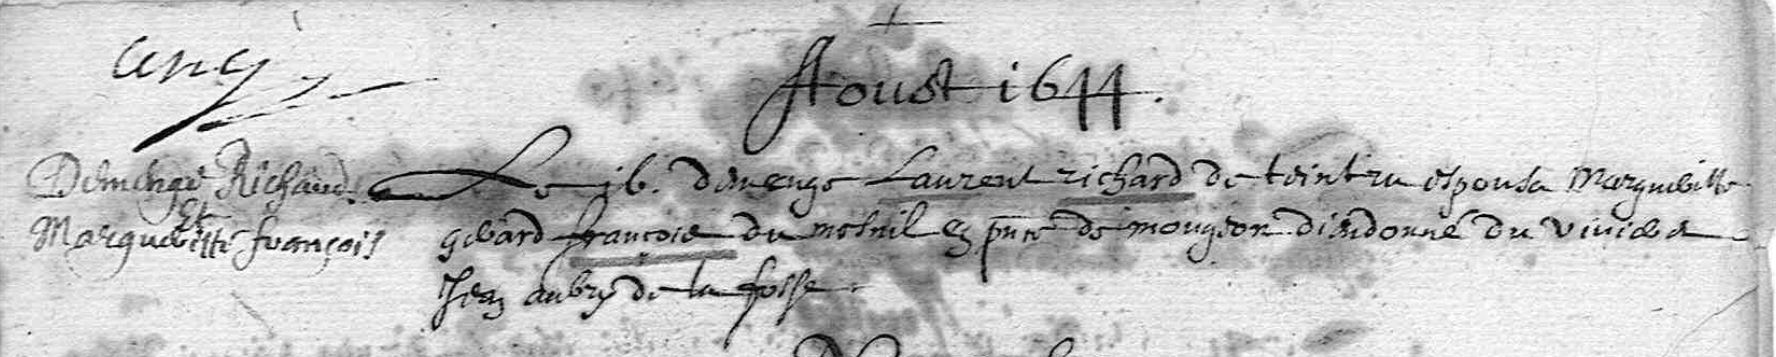 Aoust 1644.
Demenge Richard
Et
Marguebitte françois
Le 16. demenge Laurent richard de teintru espousa Marguebitte
gerard françois du mesnil en pnce de mougeon diedonné du vivier
Jean aubry de la fosse